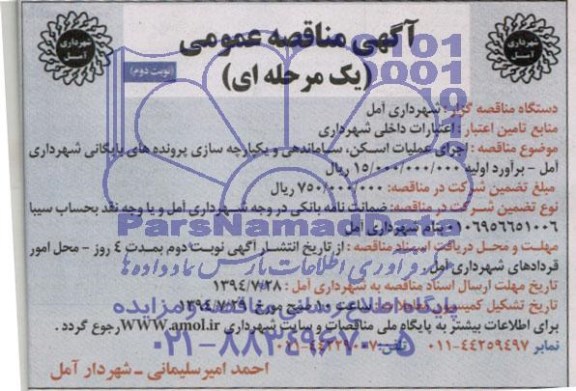 آگهی مناقصه عمومی
(یک مرحله ای)
(نوبت دوم)
شهرداری آمل
شهرداری آمل
دستگاه مناقصه گزار: شهرداری آمل
منابع تامین اعتبار: اعتبارات داخلی شهرداری
موضوع مناقصه: اجرای عملیات اسکن، ساماندهی و یکپارچه سازی پرونده های بایگانی شهرداری
آمل - برآورد اولیه ۱۵/۰۰۰/۰۰۰/۰۰۰ ریال
مبلغ تضمین شرکت در مناقصه: ۷۵۰/۰۰۰/۰۰۰ ریال
نوع تضمین شرکت در مناقصه: ضمانت نامه بانکی در وجه شهرداری آمل و یا وجه نقد بحساب سیبا
۰۱۰۶۹۵۶۶۵۱۰۰۶ بنام شهرداری آمل
مهلت و محل دریافت اسناد مناقصه: از تاریخ انتشار آگهی نوبت دوم بمدت ۴ روز - محل امور
قراردادهای شهرداری آمل
تاریخ مهلت ارسال اسناد مناقصه به شهرداری آمل: ۱۳۹۴/۷/۲۸
تاریخ تشکیل کمیسیون معاملات: ساعت ۱۰ صبح مورخ
برای اطلاعات بیشتر به پایگاه ملی مناقصات و سایت شهرداری WWW.amol.ir رجوع گردد.
نمابر ۴۴۲۵۹۴۹۷-۰۱۱ تلفن:
احمد امیرسلیمانی - شهردار آمل
ParsNamadData
مرکز فرآوری اطلاعات پارس نماد داده ها
پایگاه اطلاع رسانی مناقصه و مزایده
۰۲۱-۸۸۳۴۹۶۷۰-۵